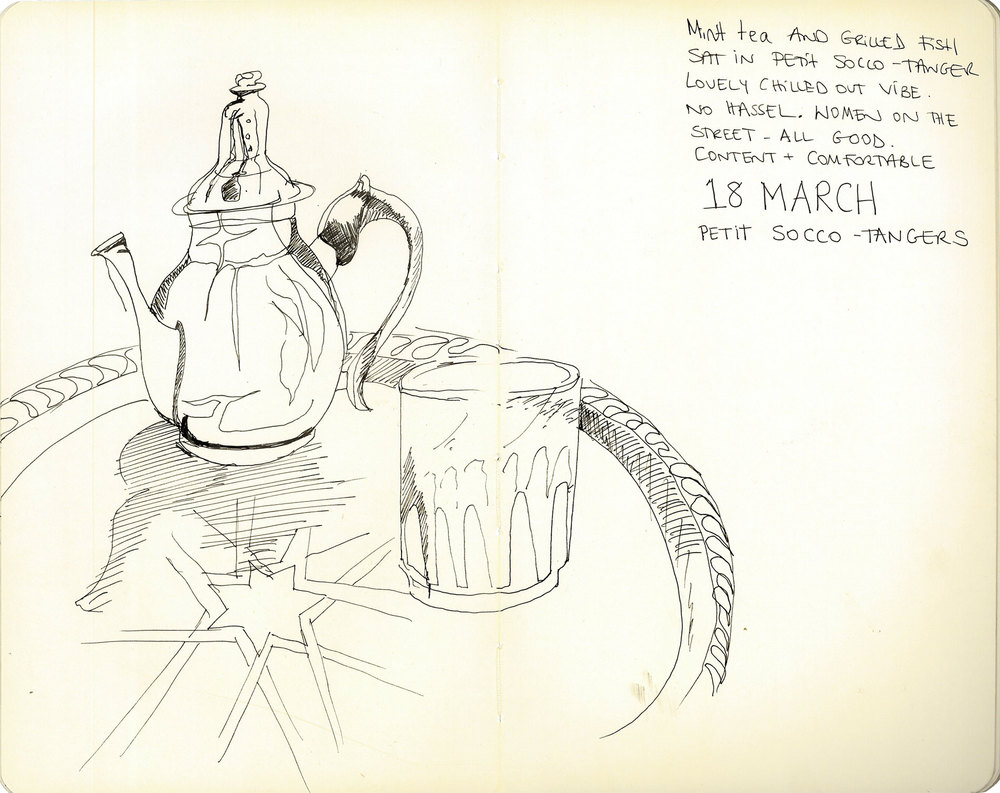 Mint tea AND GRILLED FISH
SAT IN PETIT SOCCO - TANGER
LOVELY CHILLED OUT VIBE.
NO HASSEL. WOMEN ON THE
STREET - ALL GOOD.
CONTENT + COMFORTABLE
18 MARCH
PETIT SOCCO - TANGERS